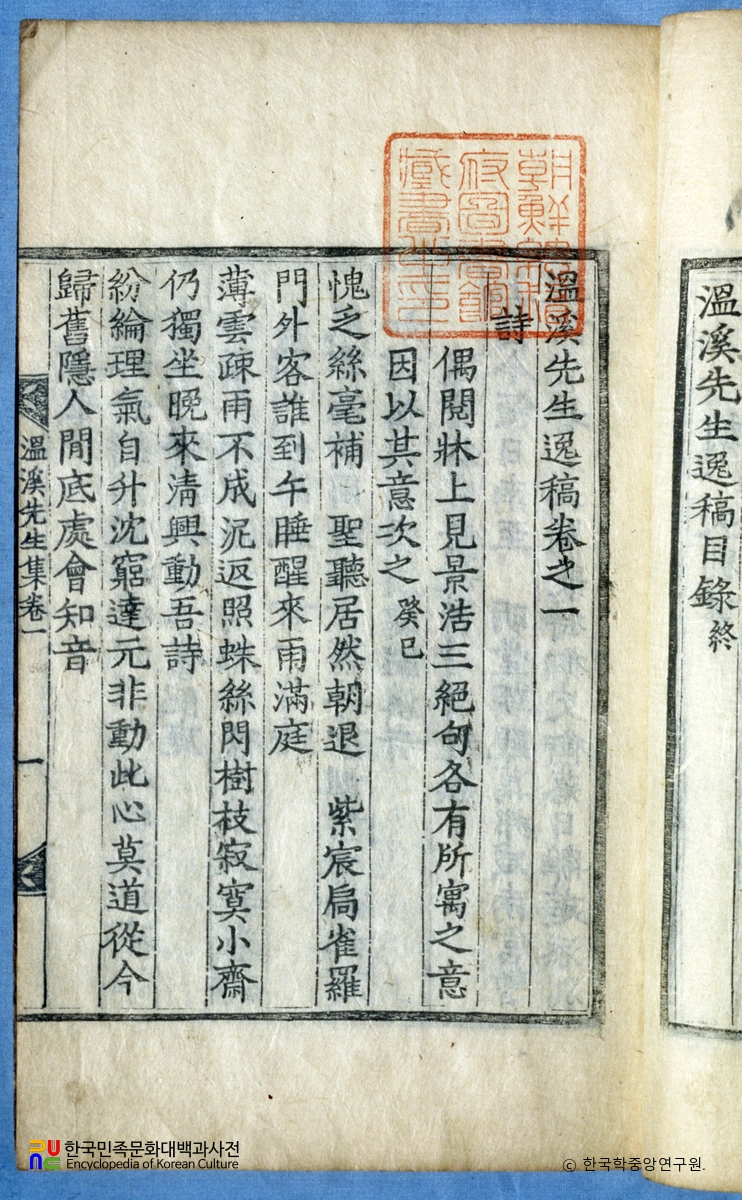 溫溪先生逸稿目錄終
朝鮮總督
府圖書館
藏書之印
溫溪先生逸稿卷之一
詩
偶閱牀上見景浩三絕句各有所寓之意
因以其意次之癸巳
愧乏絲毫補 聖聽居然朝退 紫宸扃雀羅
門外客誰到午睡醒來雨滿庭
薄雲疎雨不成泥返照蛛絲閃樹枝寂寞小齋
仍獨坐晚來清興動吾詩
紛綸理氣自升沈窮達元非動此心莫道從今
歸舊隱人間底處會知音
溫溪先生集卷一
一
한국민족문화대백과사전
Encyclopedia of Korean Culture
ⓒ 한국학중앙연구원.